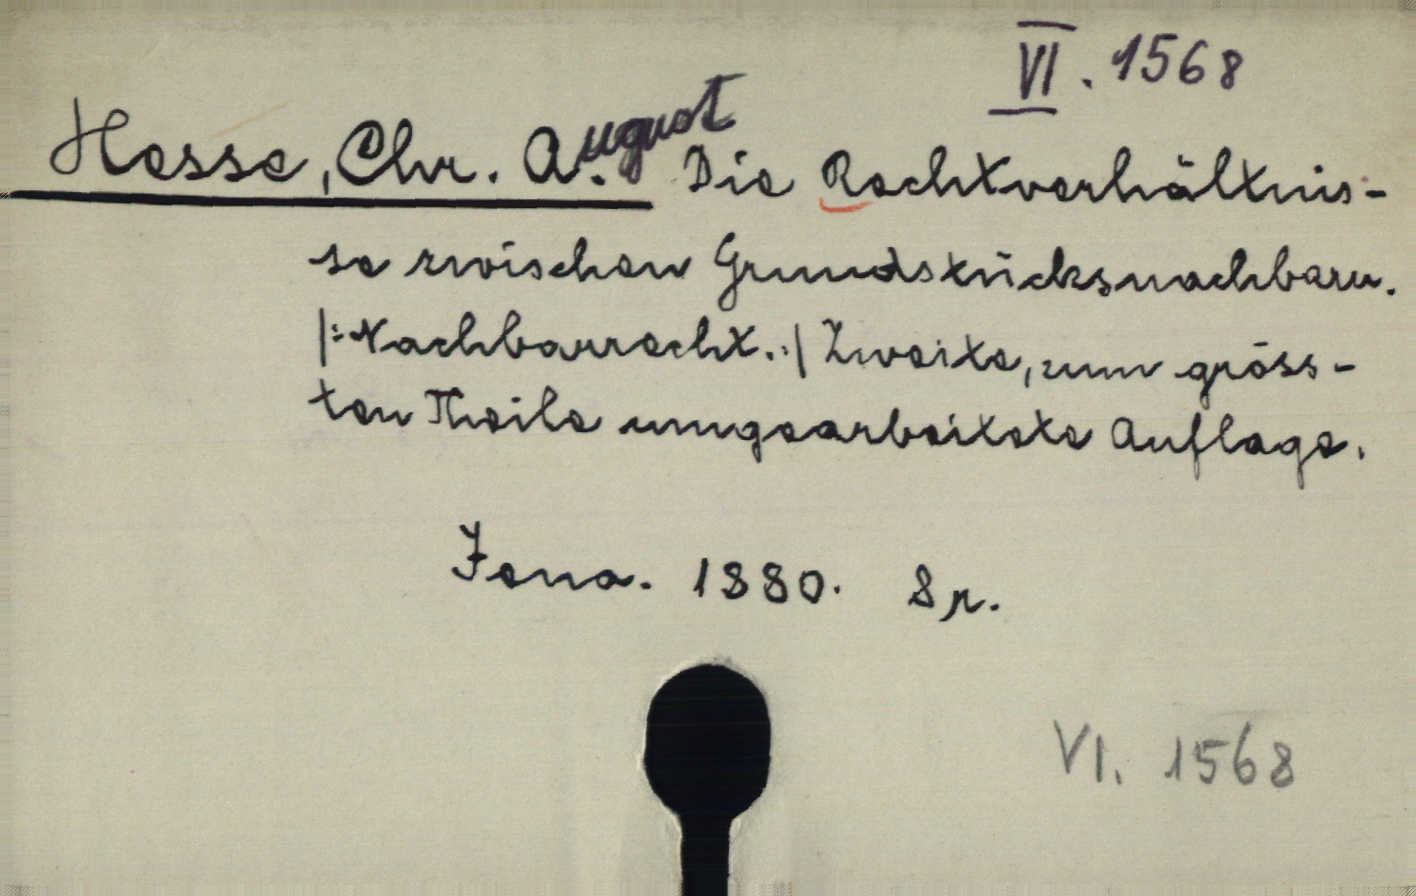 VI. 1568
Hesse, Chr. August Die Rechtverhältnis-
se zwischen Grundstücksnachbarn.
|:Nachbarrecht.:| Zweite, zum gröss-
ten Theile umgearbeitete Auflage.
Jena. 1880. 8r.
VI. 1568